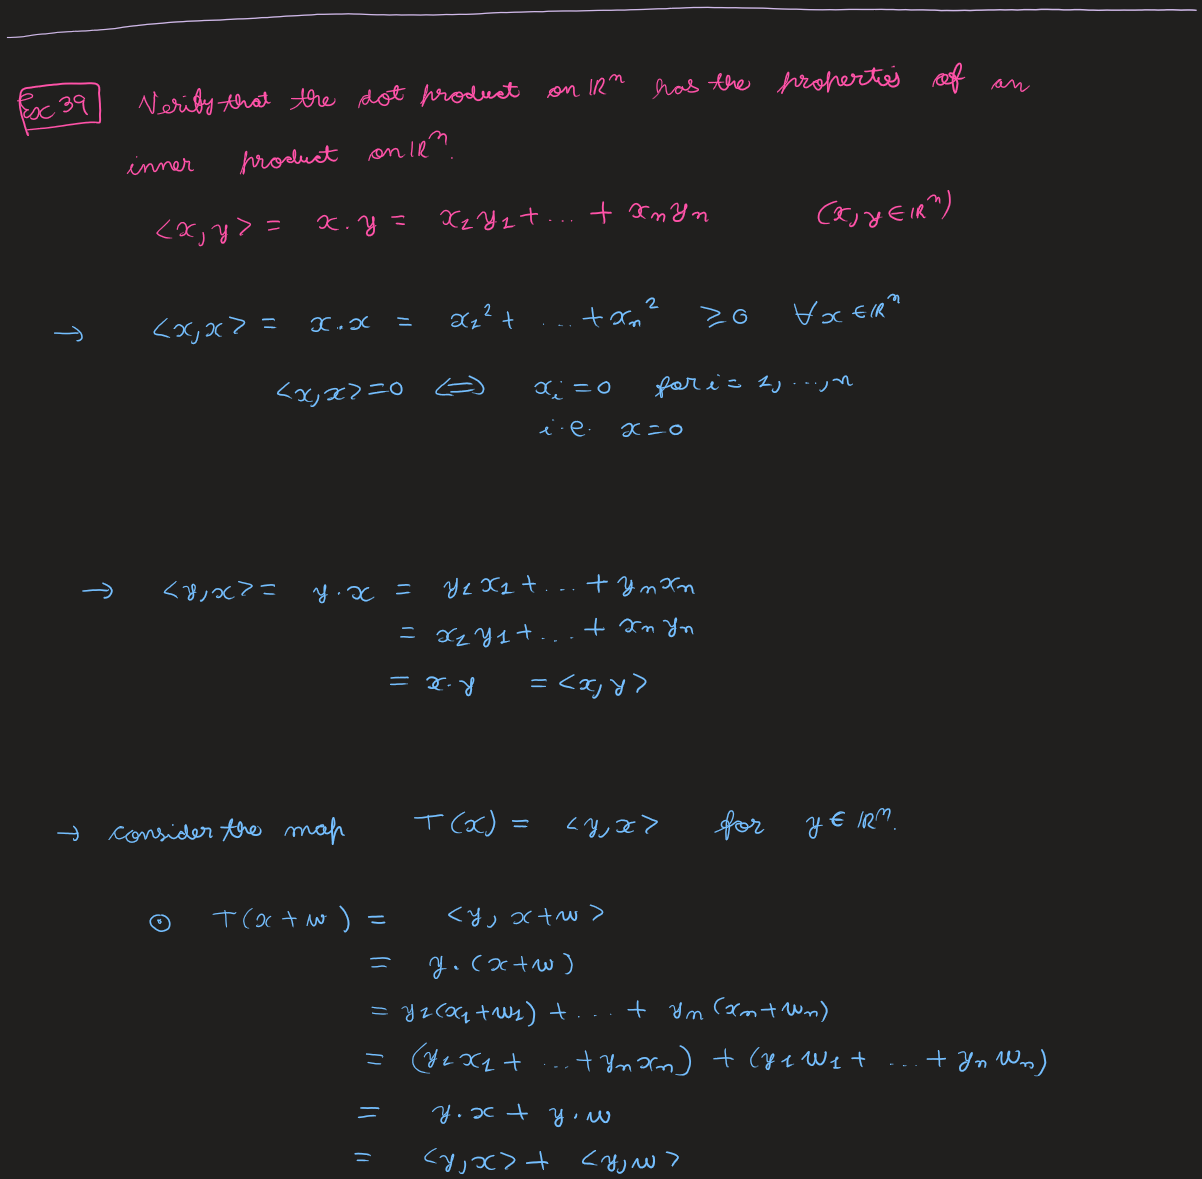 Ex 39 Verify that the dot product on ℝⁿ has the properties of an
inner product on ℝⁿ.
<x, y> = x . y = x₁ y₁ + ... + xₙ yₙ (x, y ∈ ℝⁿ)
→ <x, x> = x . x = x₁² + ... + xₙ² ≥ 0 ∀ x ∈ ℝⁿ
<x, x> = 0 ⟺ xᵢ = 0 for i = 1, ..., n
i.e. x = 0
→ <y, x> = y . x = y₁ x₁ + ... + yₙ xₙ
= x₁ y₁ + ... + xₙ yₙ
= x . y = <x, y>
→ consider the map T(x) = <y, x> for y ∈ ℝⁿ.
⊙ T(x + w) = <y, x + w>
= y . (x + w)
= y₁(x₁ + w₁) + ... + yₙ (xₙ + wₙ)
= (y₁ x₁ + ... + yₙ xₙ) + (y₁ w₁ + ... + yₙ wₙ)
= y . x + y . w
= <y, x> + <y, w>